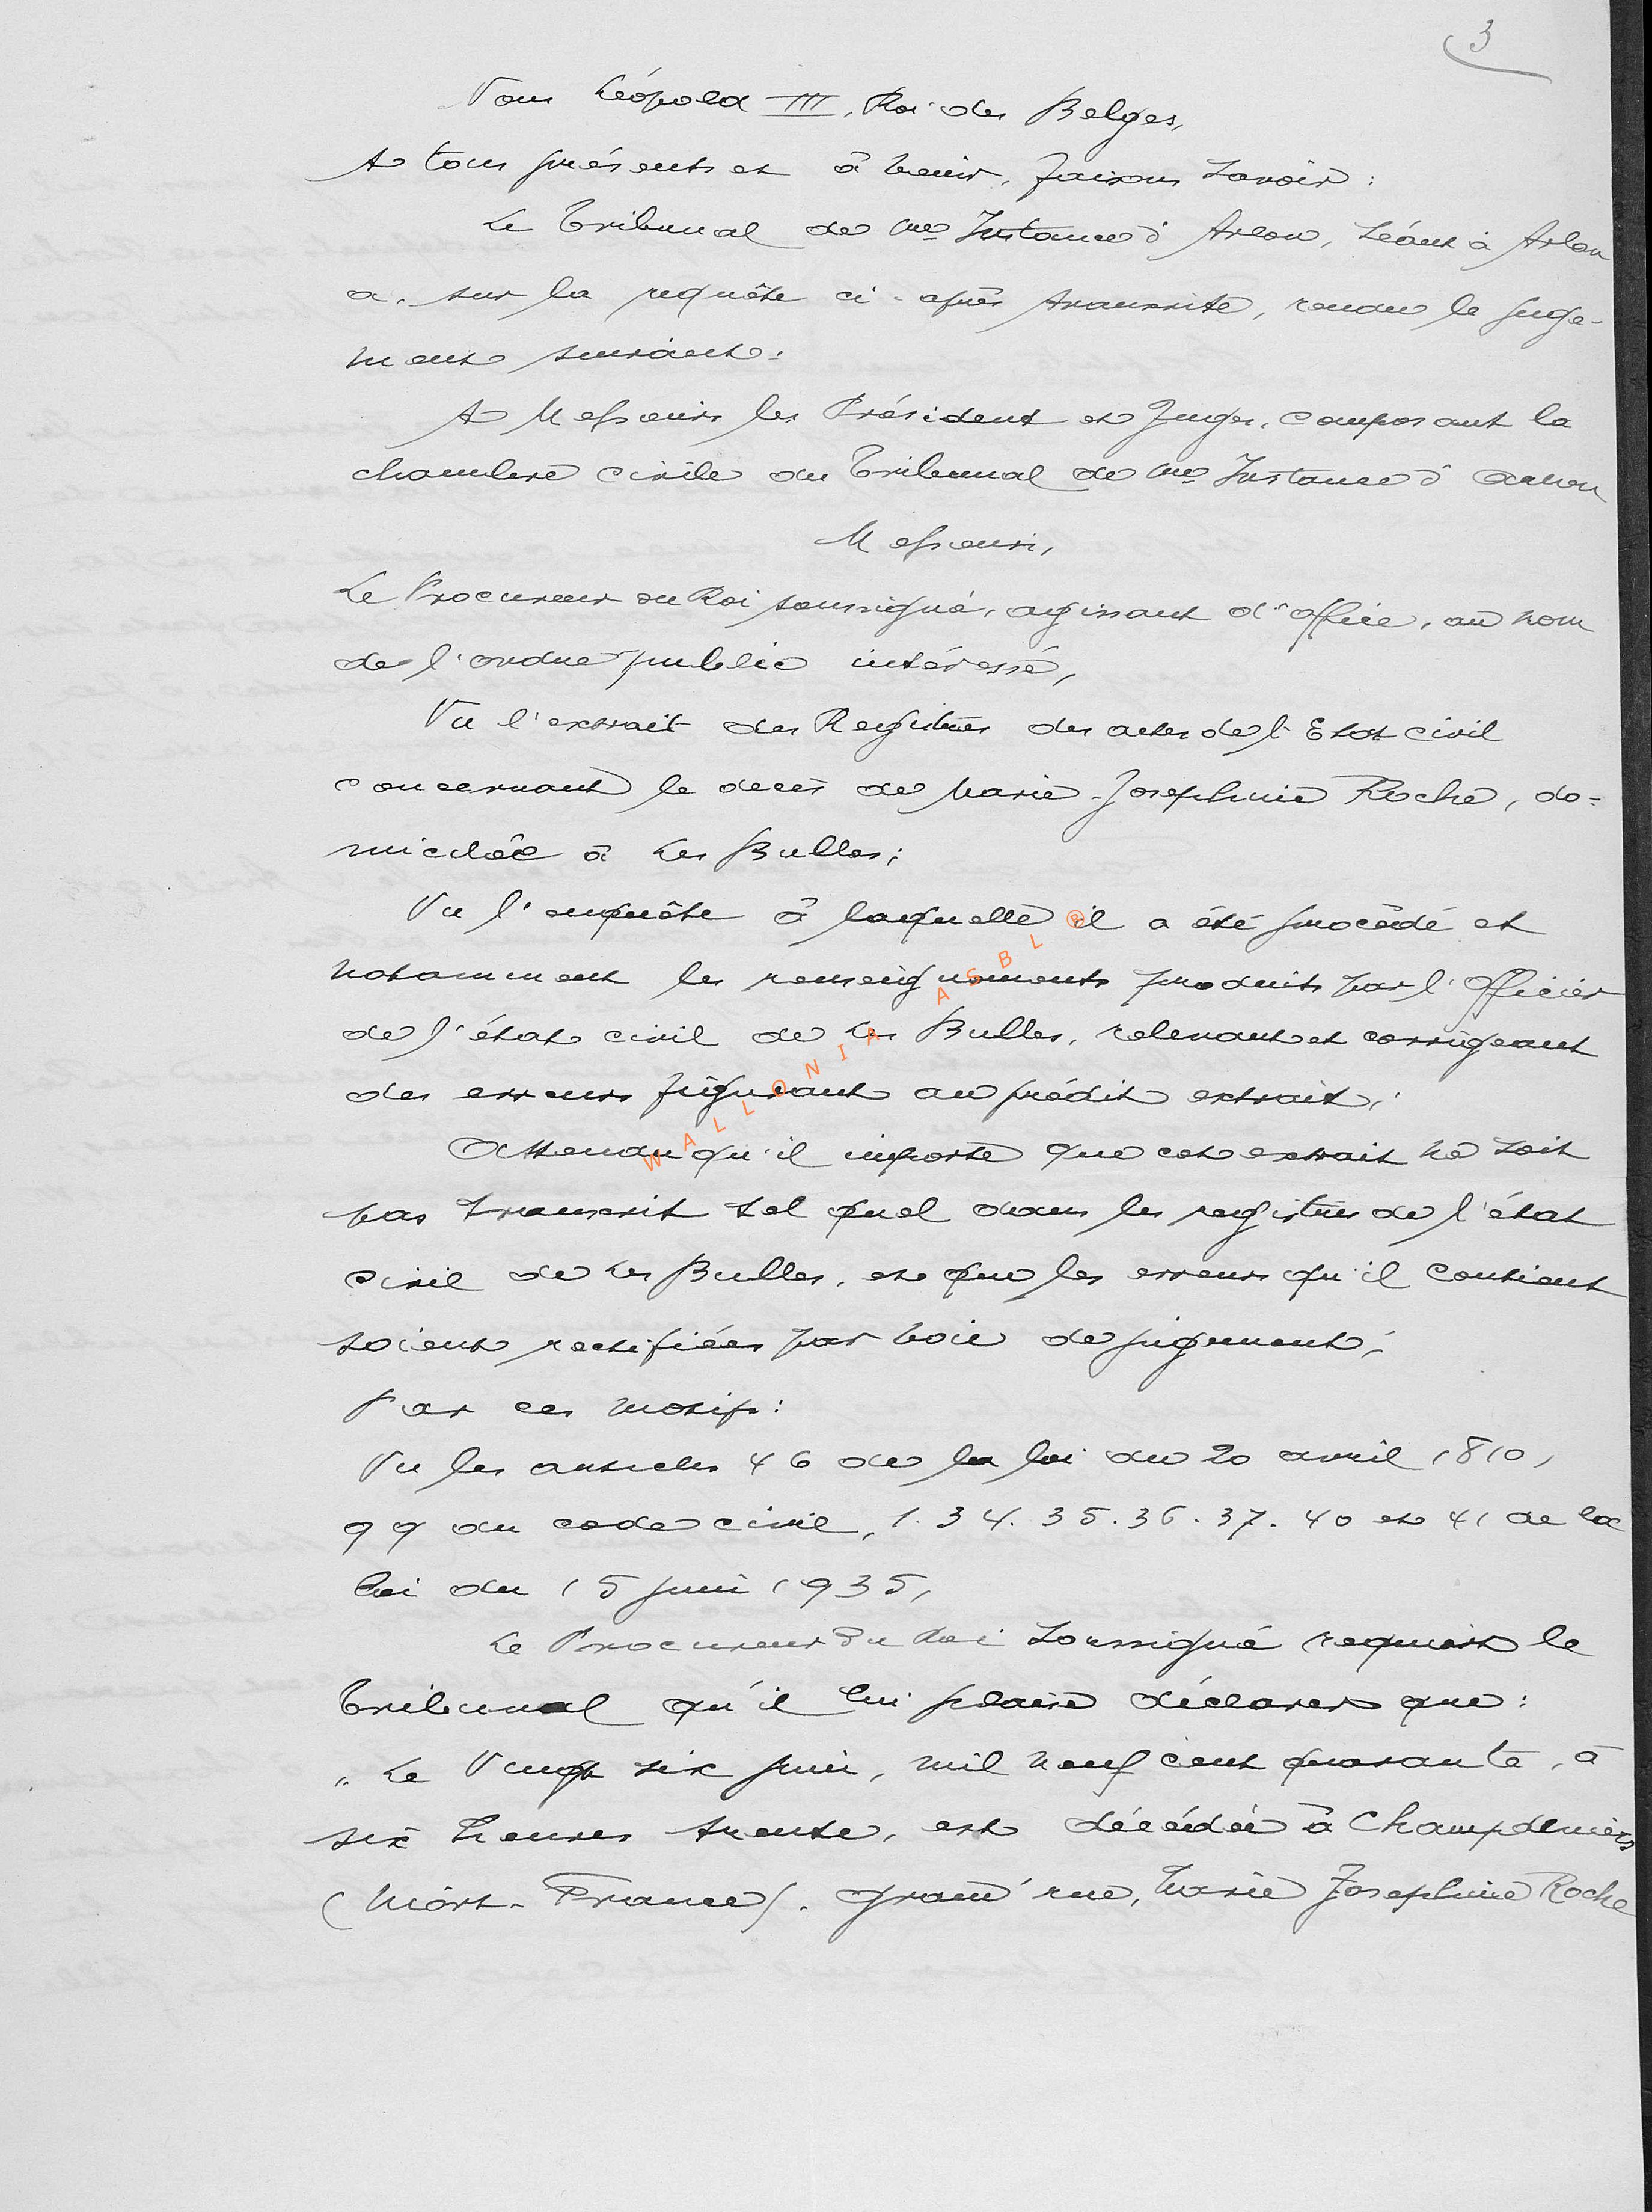 3
Nous Léopold III, Roi des Belges,
A tous présents et à venir, faisons savoir :
Le Tribunal de 1re Instance d'Arlon, séant à Arlon
a, sur la requête ci-après transcrite, rendu le juge-
ment suivant :
A Messieurs les Président et Juges, composant la
chambre civile du Tribunal de 1re Instance d'Arlon
Messieurs,
Le Procureur du Roi soussigné, agissant d'office, au nom
de l'ordre public intéressé,
Vu l'extrait des Registres des actes de l'Etat civil
concernant le décès de Marie-Josephine Roche, do=
miciliée à Les Bulles ;
Vu l'enquête à laquelle il a été procédé et
notamment les renseignements produits par l'Officier
de l'état civil de Les Bulles, relevant et corrigeant
des erreurs figurant au prédit extrait ;
Attendu qu'il importe que cet extrait ne soit
pas transcrit tel quel dans les registres de l'état
civil de Les Bulles, et que les erreurs qu'il contient
soient rectifiées par voie de jugement ;
Par ces motifs :
Vu les articles 46 de la loi du 20 avril 1810,
99 du code civil, 1. 34. 35. 36. 37. 40 et 41 de la
loi du 15 juin 1935,
Le Procureur du Roi soussigné requiert le
Tribunal qu'il lui plaise déclarer que :
" Le Vingt six juin, mil neuf cent quarante, à
six heures trente, est décédée à Champdeniers
(Niort-France), grand'rue, Marie Josephine Roche
WALLONIA ASBL ®